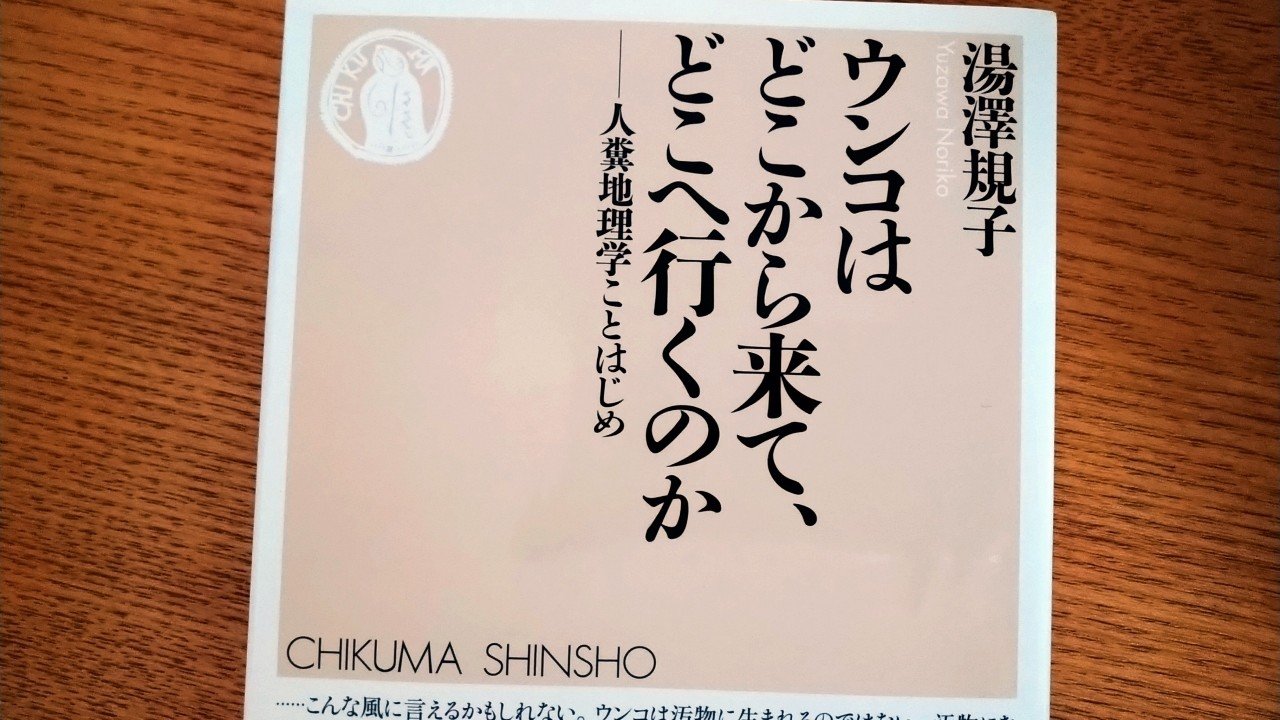 湯澤規子
Yuzawa Noriko
ウンコは
どこから来て、
どこへ行くのか
――人糞地理学ことはじめ
CHIKUMA
CHIKUMA SHINSHO
……こんな風に言えるかもしれない。ウンコは汚物に生まれるのではない、汚物にな